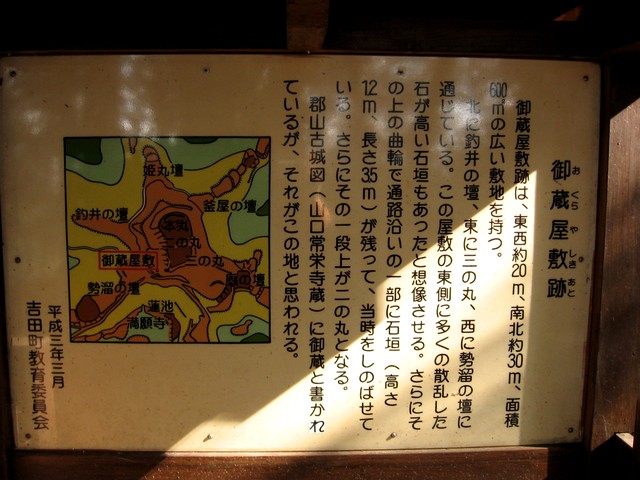 御蔵屋敷跡
おくらやしきあと
御蔵屋敷跡は、東西約20m、南北約30m、面積
600㎡の広い敷地を持つ。
北に釣井の壇、東に三の丸、西に勢溜の壇に
通じている。この屋敷の東側に多くの散乱した
石が高い石垣もあったと想像させる。さらにそ
の上の曲輪で通路沿いの一部に石垣(高さ
1.2m、長さ3.5m)が残って、当時をしのばせて
いる。さらにその一段上が二の丸となる。
郡山古城図(山口常栄寺蔵)に御蔵と書かれ
ているが、それがこの地と思われる。
平成三年三月
吉田町教育委員会
姫丸壇
釜屋の壇
釣井の壇
本丸
二の丸
御蔵屋敷
三の丸
勢溜の壇
蓮池
満願寺